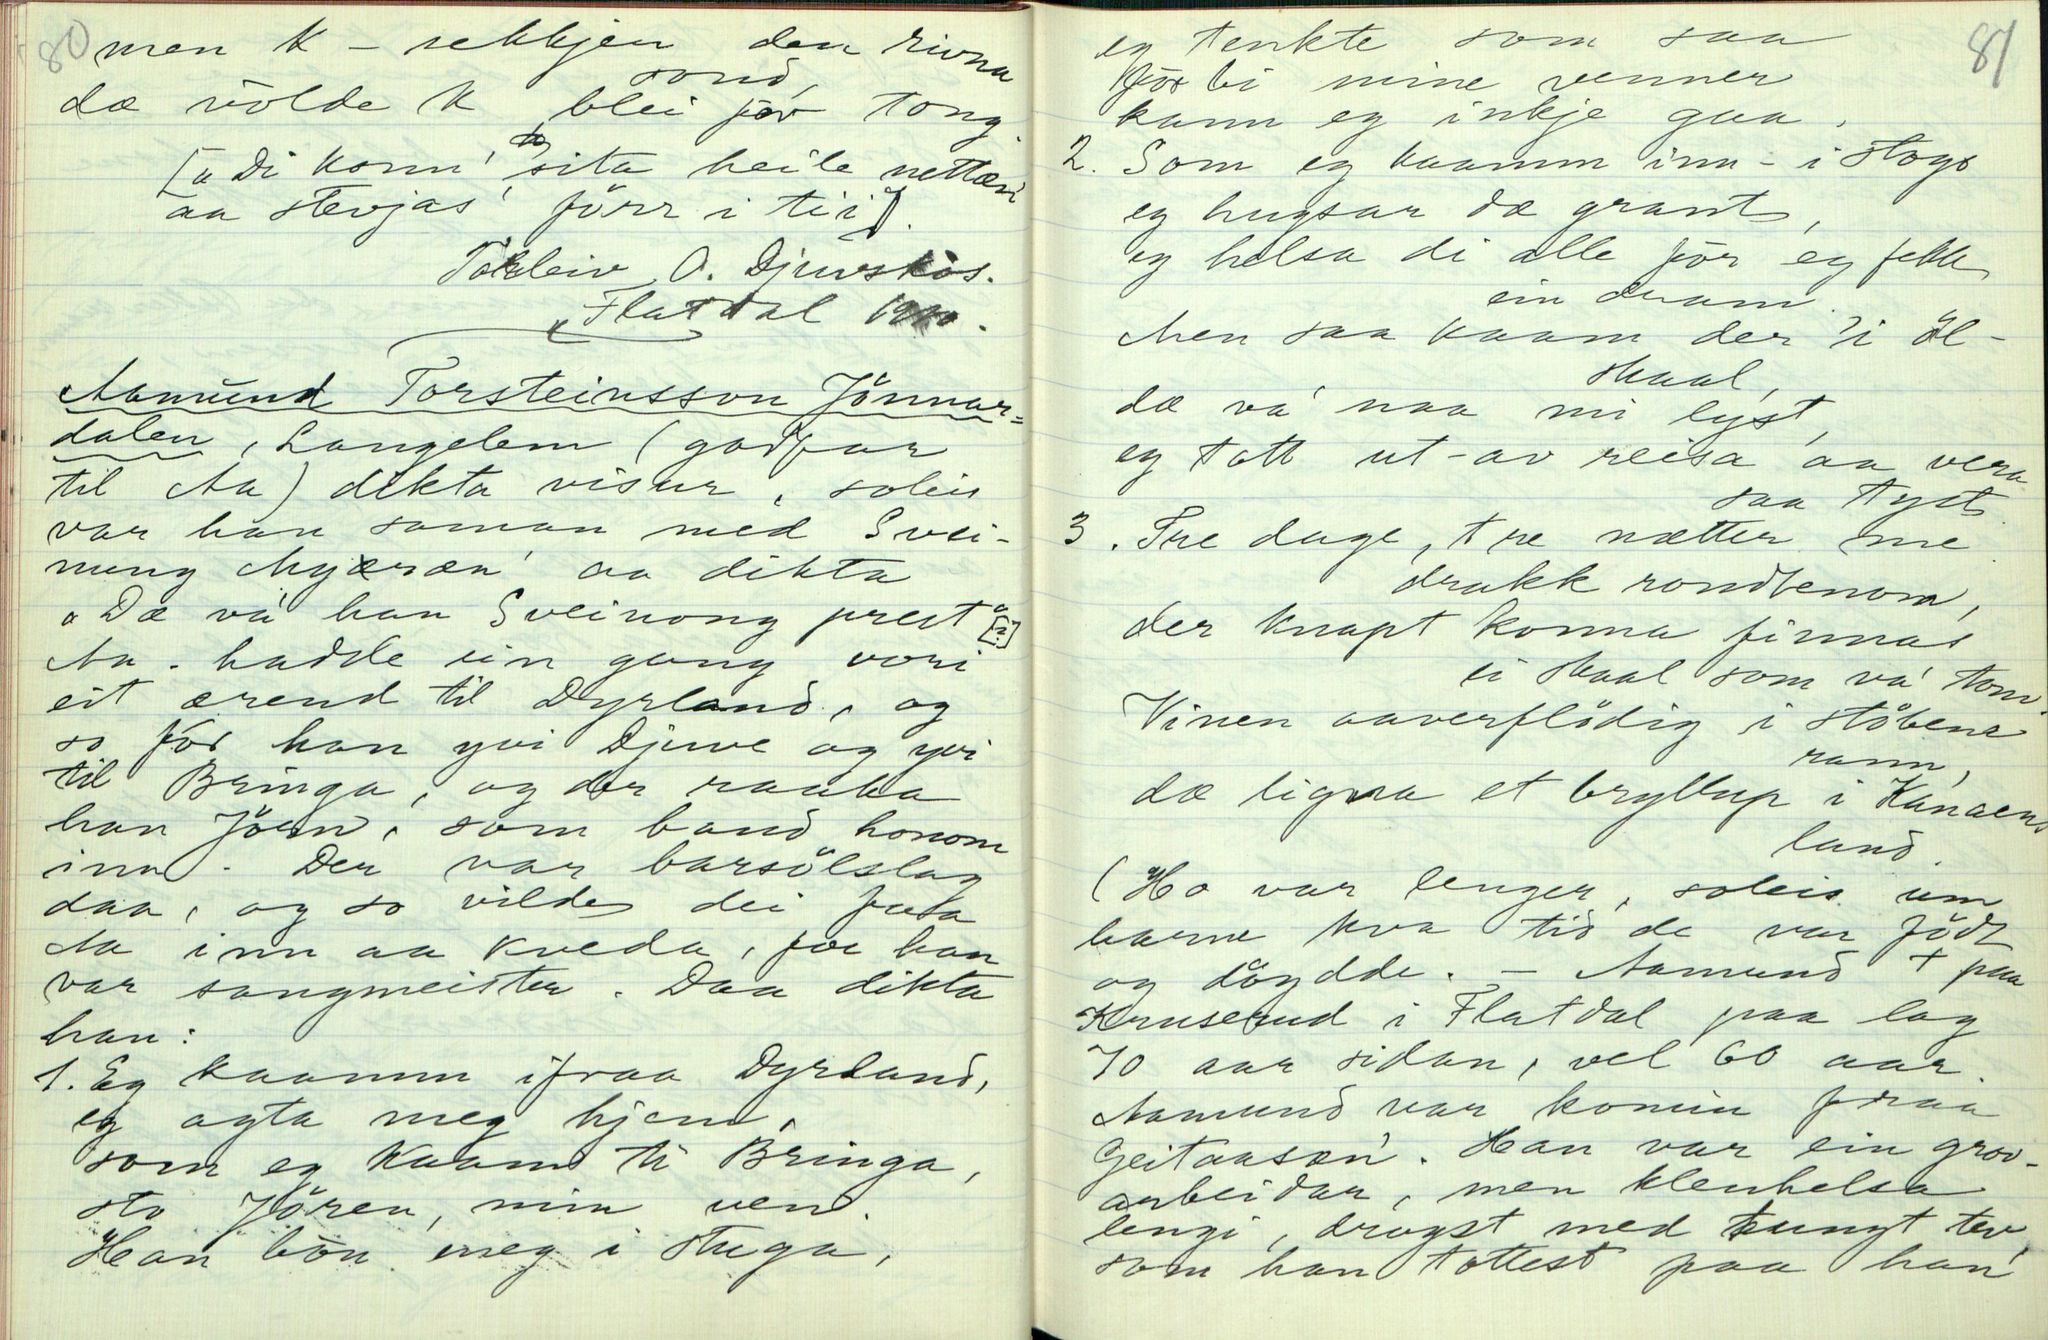 80
men K - sekkjen den rivna
sond,
dæ volde K blei för tong.
["Di konn' sita heile nettæn'
aa stevjas' förr i tii"].
Torleiv O. Djuvskås.
Flatdal 1910.
Aamund Torsteinsson Jönnar-
dalen, Langelem (godfar
til Aa) dikta visur, soleis
var han saman med Svei-
nung Myræn' aa dikta
"Dæ vá han Sveinong prest" [?]
Aa. hadde ein gong vori
eit ærend til Dyrland, og
so för han yvi Djuve og yvi
til Bringa, og der raaka
han Jören, som baud honom
inn. Der var barsölslag
daa, og so vilde dei faa
Aa inn aa kveda, for han
var songmeister. Daa dikta
han:
1. Eg kaamm ifraa Dyrland,
eg agta meg hjem,
som eg kaam ti Bringa,
sto Jören, min ven.
Han bön meg i stuga,
81
eg tenkte som saa
forbi mine venner
kann eg inkje gaa.
2. Som eg kaamm inn - i stogo
eg hugsar dæ grant,
eg helsa di alle för eg fekk
ein dram.
Men saa kaam der i öl-
skaal,
dæ vá naa mi lyst,
eg tott ut-av reisa aa vera
saa tyst.
3. Tre dage, tre nætter me
drakk rondtenom,
der knapt konna finnas
ei skaal som vá tom.
Vinen aaverflödig i stöbena
rann,
dæ ligna et bryllup i Kanaens
land.
(Ho var lenger, soleis um
barne kva tid de var födt
og döydde. - Aamund + paa
Kruserud i Flatdal paa lag
70 aar sidan, vel 60 aar.
Aamund var komin fraa
Geitaasæn'. Han var ein grov-
arbeidar, men klenhelsa
lengi, drogst med tungt tev,
som han tottest paa han'